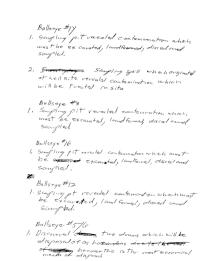 Bullseye #14
1. Sampling pit reveal contamination which
must be excavated, landfarmed, disced and
sampled.
2. Sampling
at well site reveal contamination which
will be treated in situ
Bullseye #9
1. Sampling pit reveal contamination which
must be excavated, landfarmed, disced and
sampled.
Bullseye #16
1. Sampling pit reveal contamination which must
be excavated, landfarmed, disced and
sampled.
Bullseye #12
1. Sampling pit reveal contamination which must
be excavated, landfarmed, disced and
sampled
1. Discovered two drums which will be
disposed of by
because this is the most economical
means of disposal